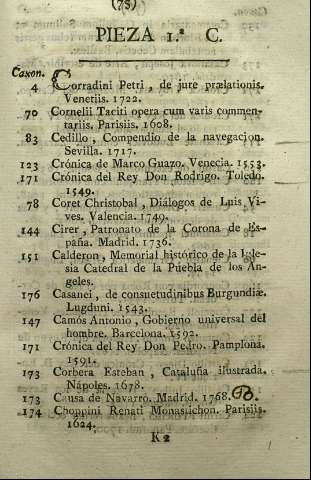 (75)
PIEZA 1.ª C.
Caxon.
4 Corradini Petri, de jure prælationis.
Venetiis. 1722.
70 Cornelii Taciti opera cum variis commen-
tariis. Parisiis. 1608.
83 Cedillo, Compendio de la navegacion.
Sevilla. 1717.
123 Crónica de Marco Guazo. Venecia. 1553.
171 Crónica del Rey Don Rodrigo. Toledo.
1549.
78 Coret Christobal, Diálogos de Luis Vi-
ves. Valencia. 1749.
144 Cirer, Patronato de la Corona de Es-
paña. Madrid. 1736.
151 Calderon, Memorial histórico de la Igle-
sia Catedral de la Puebla de los An-
geles.
176 Casanei, de consuetudinibus Burgundiæ.
Lugduni. 1543.
147 Camós Antonio, Gobierno universal del
hombre. Barcelona. 1592.
171 Crónica del Rey Don Pedro. Pamplona.
1591.
173 Corbera Esteban, Cataluña ilustrada.
Nápoles. 1678.
173 Causa de Navarro. Madrid. 1768.
174 Choppini Renati Monastichon. Parisiis.
1624.
K2